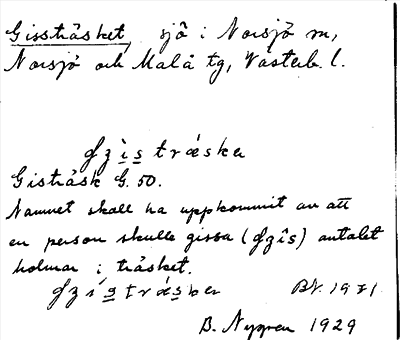 Gissträsket, sjö i Norsjö sn,
Norsjö och Malå tg, Västerb. l.
Gisträsk G. 50.
Namnet skall ha uppkommit av att
en person skulle gissa (dzîs) antalet
holmar i träsket.
B. Nygren 1929